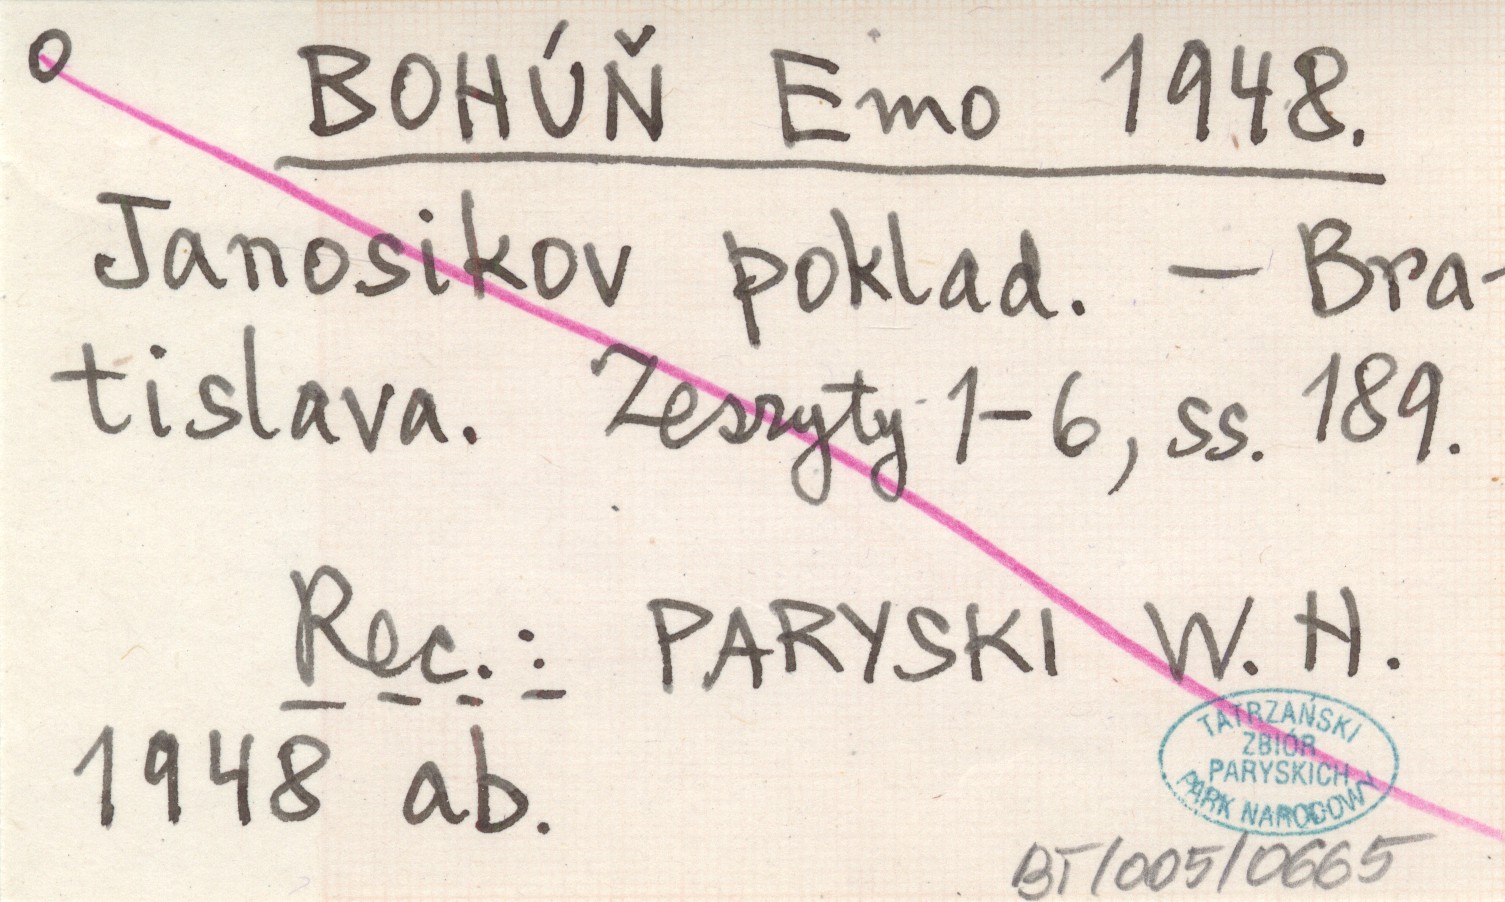 o BOHÚŇ Emo 1948.
Janosikov poklad. — Bra-
tislava. Zeszyty 1-6, ss. 189.
Rec.: PARYSKI W. H.
1948 ab.
TATRZAŃSKI
ZBIÓR
PARYSKICH
PARK NARODOWY
BT/005/0665